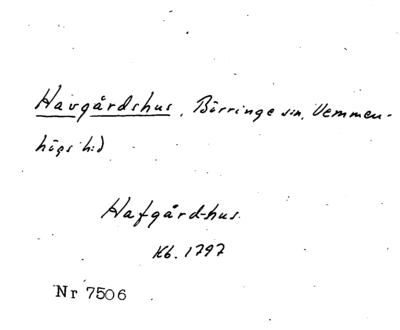 Havgårdshus, Börringe sn, Vemmen-
högs hd
Hafgård-hus
Kb. 1797
Nr 7506